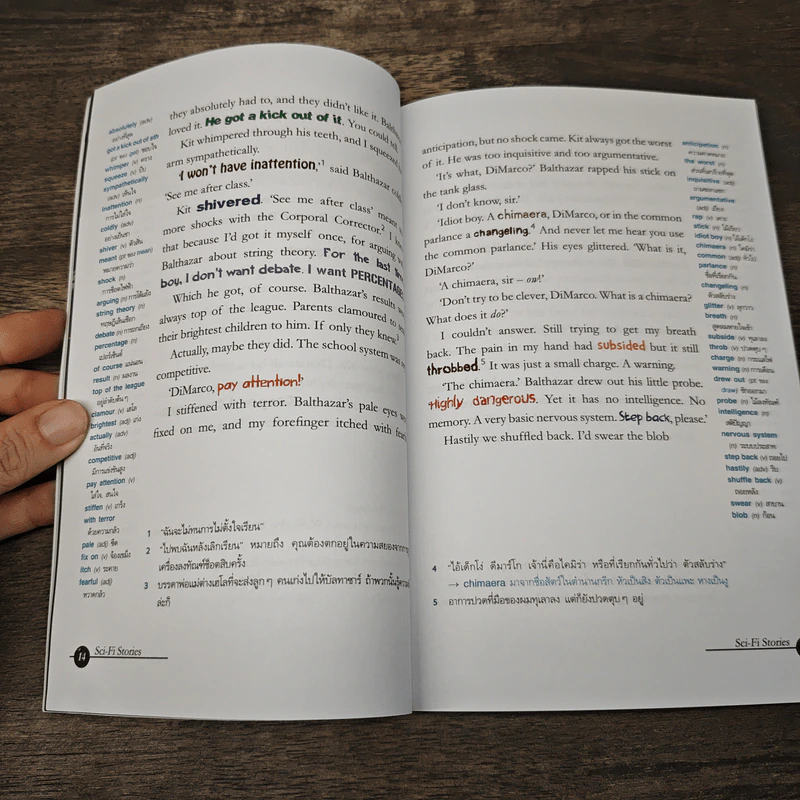 they absolutely had to, and they didn't like it.
loved it. He got a kick out of it. You could tell.
Kit whimpered through his teeth, and I squeezed
arm sympathetically.
'I won't have inattention,'1 said Balthazar coldly.
'See me after class.'
Kit shivered. 'See me after class' meant
more shocks with the Corporal Corrector.2 I
that because I'd got it myself once, for arguing
Balthazar about string theory. For the last time
boy, I don't want debate. I want PERCENTAGE
Which he got, of course. Balthazar's results
always top of the league. Parents clamoured to
their brightest children to him. If only they knew.3
Actually, maybe they did. The school system was
competitive.
'DiMarco, pay attention!'
I stiffened with terror. Balthazar's pale eyes
fixed on me, and my forefinger itched with
absolutely (adv)
อย่างที่สุด
got a kick out of sth
(pt ของ get) ชอบใจ
whimper (v) คราง
squeeze (v) บีบ
sympathetically
(adv) เห็นใจ
inattention (n)
การไม่ใส่ใจ
coldly (adv)
อย่างเย็นชา
shiver (v) ตัวสั่น
meant (pt ของ mean)
หมายความว่า
shock (n)
การช็อตไฟฟ้า
arguing (n) การโต้แย้ง
string theory (n)
ทฤษฎีเส้นเชือก
debate (n) การถกเถียง
percentage (n)
เปอร์เซ็นต์
of course แน่นอน
result (n) ผลงาน
top of the league
อยู่ลำดับต้นๆ
clamour (v)
brightest (adj) เก่ง
actually (adv)
อันที่จริง
competitive (adj)
มีการแข่งขันสูง
pay attention (v)
ใส่ใจ, สนใจ
stiffen (v) เกร็ง
with terror
ด้วยความกลัว
pale (adj) ซีด
fix on (v) จ้องเขม็ง
itch (v) ระคาย
fearful (adj)
หวาดกลัว
1 "ฉันจะไม่ทนการไม่ตั้งใจเรียน"
2 "ไปพบฉันหลังเลิกเรียน" หมายถึง คุณต้องตกอยู่ในความสยองจากการ
เครื่องลงทัณฑ์ช็อตสิบครั้ง
3 บรรดาพ่อแม่ต่างเฮโลที่จะส่งลูกๆ คนเก่งไปให้บัลทาซาร์ ถ้าพวกนั้นรู้ความ
ล่ะก็
14 Sci-Fi Stories
anticipation, but no shock came. Kit always got the worst
of it. He was too inquisitive and too argumentative.
'It's what, DiMarco?' Balthazar rapped his stick on
the tank glass.
'I don't know, sir.'
'Idiot boy. A chimaera, DiMarco, or in the common
parlance a changeling.4 And never let me hear you use
the common parlance.' His eyes glittered. 'What is it,
DiMarco?'
'A chimaera, sir – ow!'
'Don't try to be clever, DiMarco. What is a chimaera?
What does it do?'
I couldn't answer. Still trying to get my breath
back. The pain in my hand had subsided but it still
throbbed.5 It was just a small charge. A warning.
'The chimaera.' Balthazar drew out his little probe.
'Highly dangerous. Yet it has no intelligence. No
memory. A very basic nervous system. Step back, please.'
Hastily we shuffled back. I'd swear the blob
anticipation (n)
ความคาดหมาย
the worst (n)
inquisitive (adj)
argumentative
(adj)
rap (v) เคาะ
stick (n) ไม้เรียว
idiot boy (n)
chimaera (n) ไคมีร่า
common (adj) ทั่วไป
parlance (n)
changeling (n)
ตัวสลับร่าง
glitter (v)
breath (n)
subside (v) ทุเลาลง
throb (v) ปวดตุบๆ
charge (n)
warning (n) การเตือน
drew out (pt ของ
draw)
probe (n)
intelligence (n)
สติปัญญา
nervous system
(n) ระบบประสาท
step back (v) ถอยไป
hastily (adv) รีบ
shuffle back (v)
ถอยหลัง
swear (v) สาบาน
blob (n) ก้อน
4 "ไอ้เด็กโง่ ดีมาร์โก เจ้านี่คือไคมีร่า หรือที่เรียกกันทั่วไปว่า ตัวสลับร่าง"
→ chimaera มาจากชื่อสัตว์ในตำนานกรีก หัวเป็นสิง ตัวเป็นแพะ หางเป็นงู
5 อาการปวดที่มือของผมทุเลาลง แต่ก็ยังปวดตุบๆ อยู่
Sci-Fi Stories